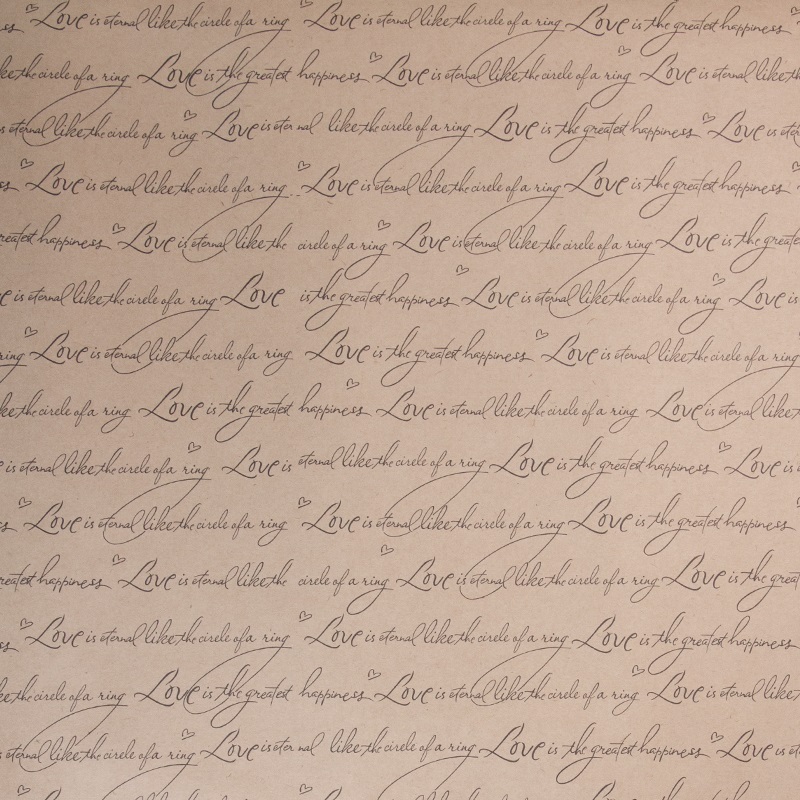 Love is eternal like the circle of a ring Love is eternal like the circle of a ring Love is the greatest happiness
the circle of a ring Love is the greatest happiness Love is eternal like the circle of a ring Love is eternal like
eternal like the circle of a ring Love is eternal like the circle of a ring Love is the greatest happiness Love is
Love is eternal like the circle of a ring Love is eternal like the circle of a ring Love is the greatest happiness
happiness Love is eternal like the circle of a ring Love is eternal like the circle of a ring Love is the
is eternal like the circle of a ring Love is the greatest happiness Love is eternal like the circle of a ring Love is
ring Love is eternal like the circle of a ring Love is the greatest happiness Love is eternal like the circle of a ring
the circle of a ring Love is the greatest happiness Love is eternal like the circle of a ring Love is eternal like
is eternal like the circle of a ring Love is eternal like the circle of a ring Love is the greatest happiness Love is
Love is eternal like the circle of a ring Love is eternal like the circle of a ring Love is the greatest happiness
happiness Love is eternal like the circle of a ring Love is eternal like the circle of a ring Love is the
Love is eternal like the circle of a ring Love is eternal like the circle of a ring Love is the greatest happiness
the circle of a ring Love is the greatest happiness Love is eternal like the circle of a ring Love is eternal like
eternal like the circle of a ring Love is eternal like the circle of a ring Love is the greatest happiness Love is